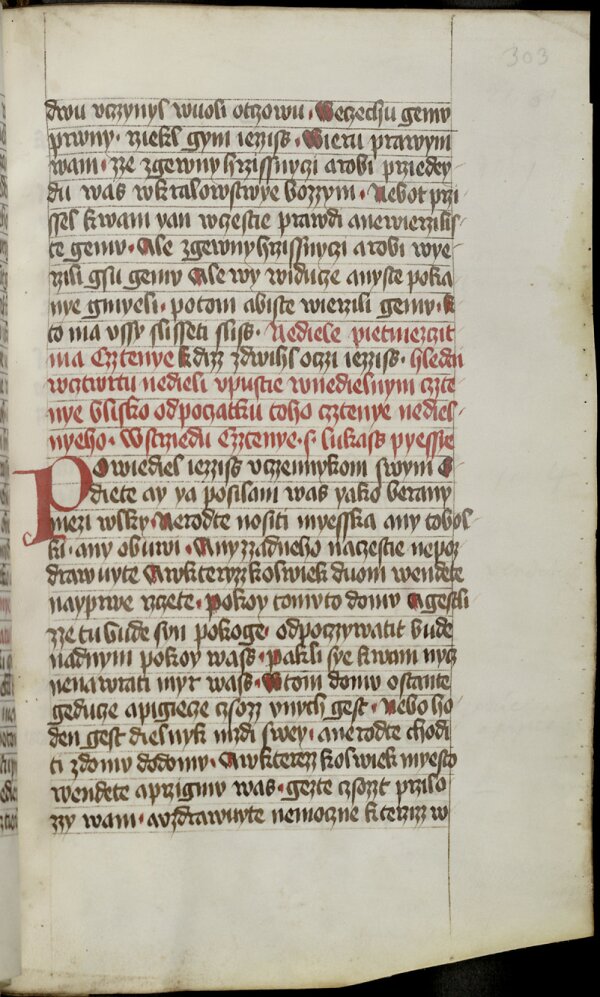 303
dwu vczynyl wuoli otczowu. Weczechu gemv
prwny. rziekl gym ieziss. Wieru prawym
wam. zze zgewny hrzissnyczi a robi przedey
du was wkralowstwye bozzym. Nebot przi
ssel kwam yan wczestie prawdi anewierzilis
te gemv. Ale zgewny hrzissnyczi a robi wye
rzili gsu gemv Ale wy widucze anyste poka
nye gmyeli. potom abiste wierzili gemv. k
to ma vssy slisseti sliss. Nediele pietmezcit
ma Cztenye kdizz zdwihl oczi ieziss. hledai
wcztwrtu nedieli vpustie wnedielnym czte
nye blisko odpoczatku toho cztenye nediel
nyeho. Wstrziedu Cztenye. s. lukass pyessie
Powiediel ieziss vczemnykom swym G
diete ay ya posilam was yako berany
mezi wlky. Nerodte nositi myesska any tobol
ki. any obuwi. Any zzadneho naczestie nepoz
drawuyte Awkteryzzkolwiek duom wendete
nayprwe rzcete. pokoy tomuto domv Agestli
zze tu bude syn pokoge. odpoczywatit bude
nadnym pokoy wass. pakli sye kwam nycz
nenawrati myr wass. Wtom domv ostante
geducze apigicze czsozz vnych gest. Nebo ho
den gest dielnyk mzdi swey. anerodte chodi
ti zdomv dodomv. Awkterezz kolwiek myesto
wendete aprzigmv was. gezte czsozzt przilo
zzy wam. auzdrawuyte nemoczne kterzizz w